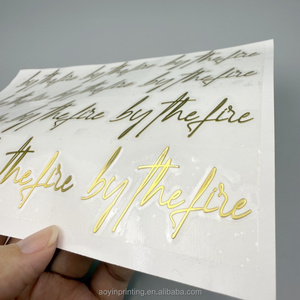 by the fire by the fire by the fire
by the fire by the fire by the fire
by the fire by the fire
the fire by the fire
aoyinprinting.en.alibaba.com